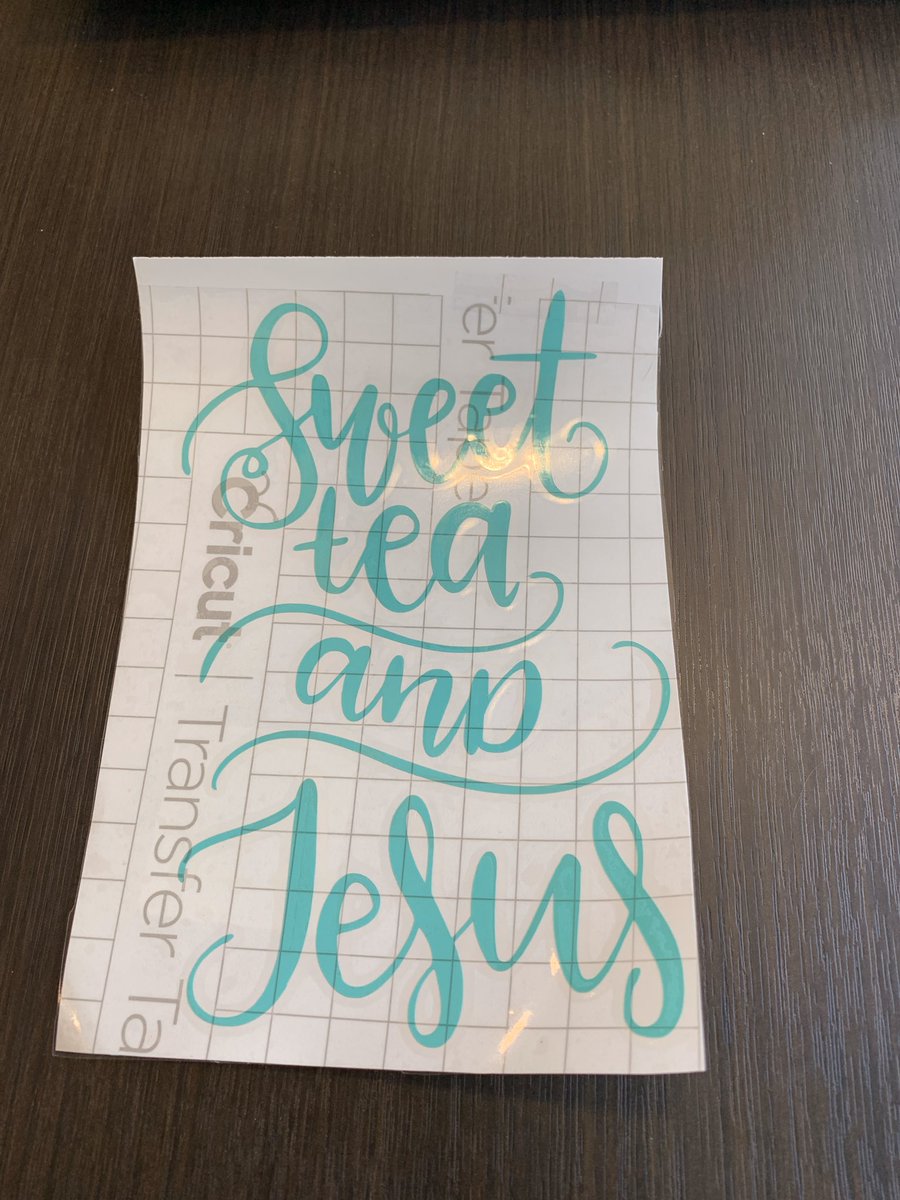 Sweet
tea
and
Jesus
cricut | Transfer Ta
er Tape